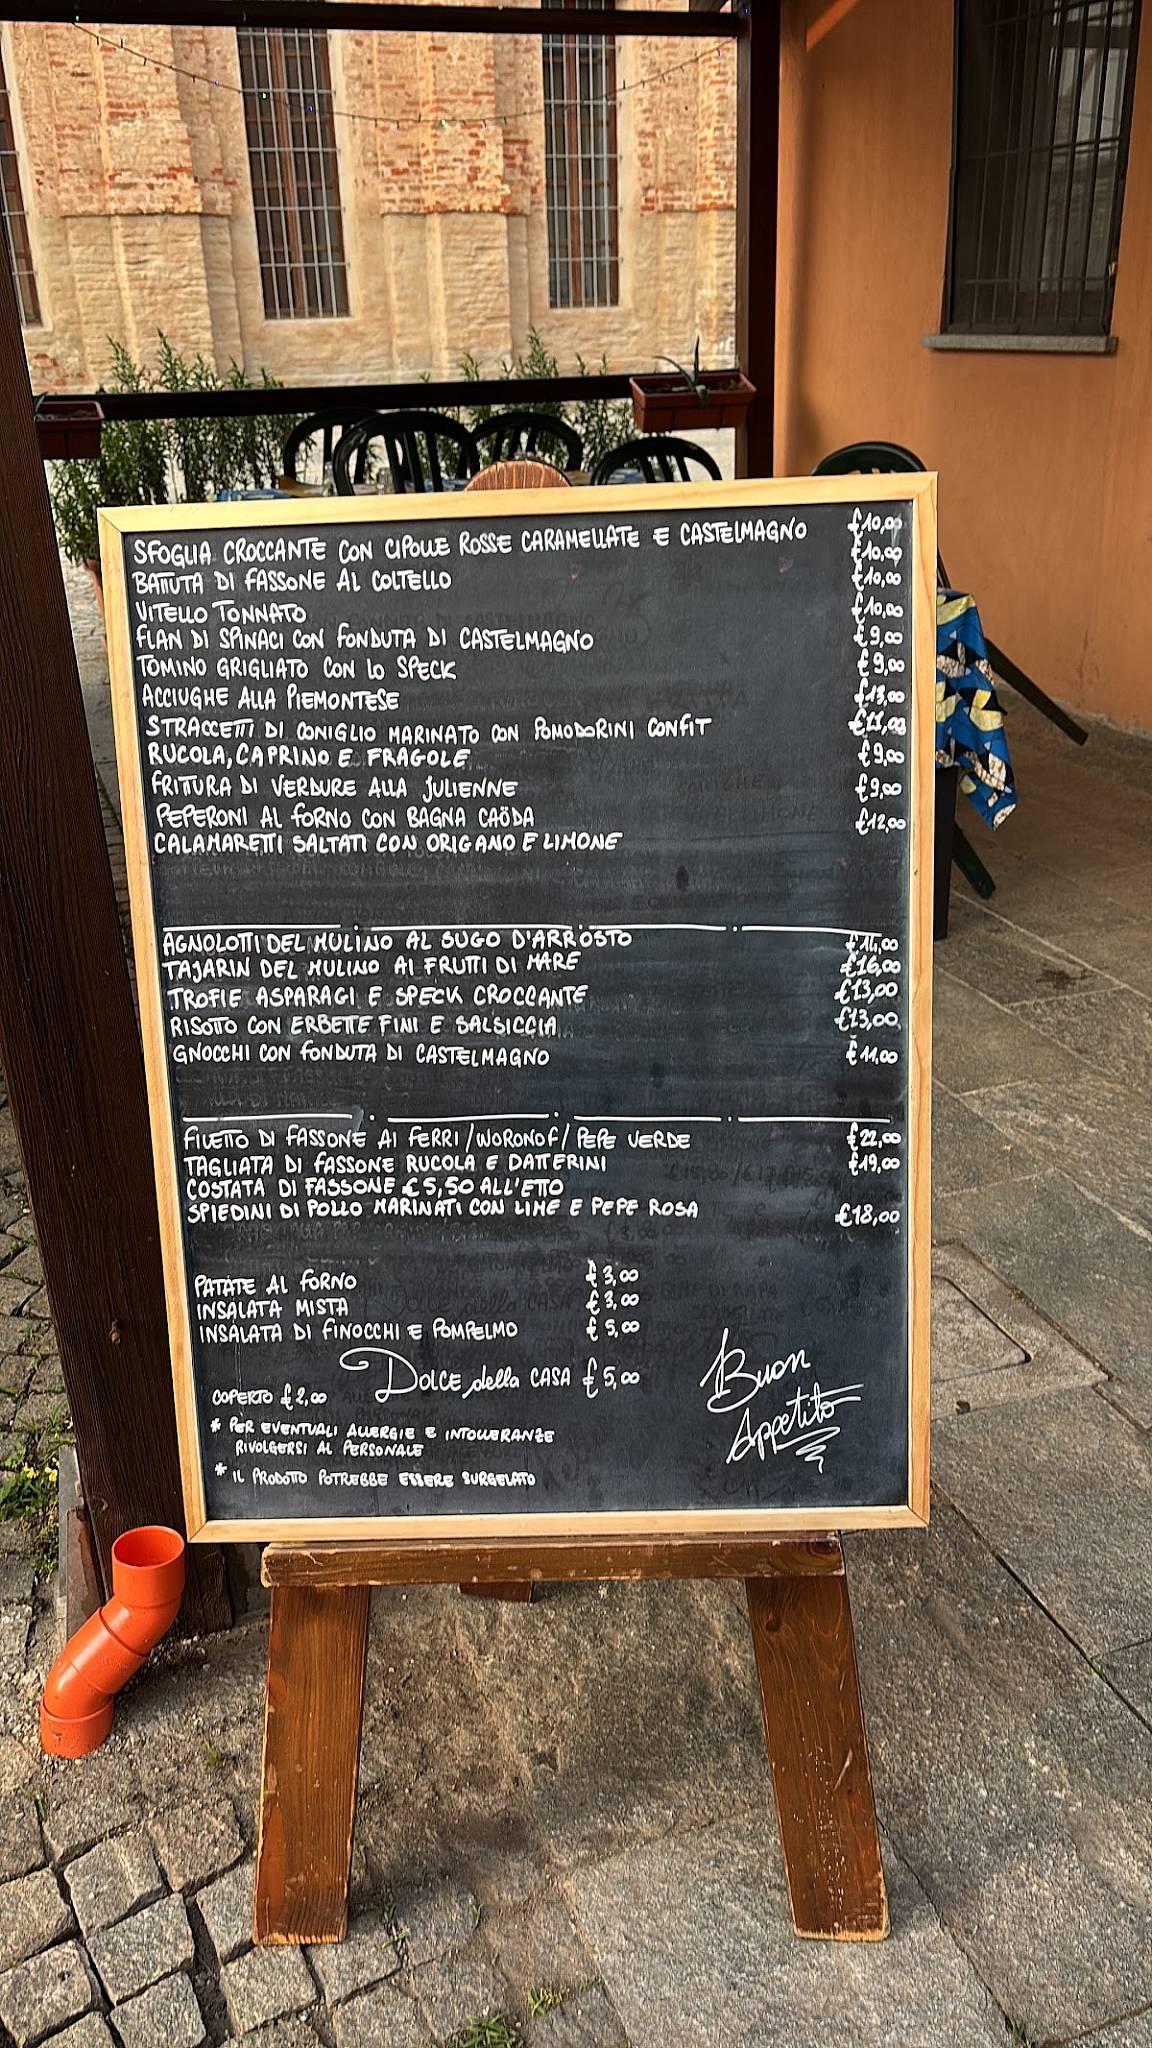 SFOGLIA CROCCANTE CON CIPOLLE ROSSE CARAMELLATE E CASTELMAGNO €10,00
BATTUTA DI FASSONE AL COLTELLO €10,00
VITELLO TONNATO €10,00
FLAN DI SPINACI CON FONDUTA DI CASTELMAGNO €10,00
TOMINO GRIGLIATO CON LO SPECK €9,00
ACCIUGHE ALLA PIEMONTESE €9,00
STRACCETTI DI CONIGLIO MARINATO CON POMODORINI CONFIT €13,00
RUCOLA, CAPRINO E FRAGOLE €11,00
FRITTURA DI VERDURE ALLA JULIENNE €9,00
PEPERONI AL FORNO CON BAGNA CAÖDA €9,00
CALAMARETTI SALTATI CON ORIGANO E LIMONE €12,00
AGNOLOTTI DEL MULINO AL SUGO D'ARROSTO €14,00
TAJARIN DEL MULINO AI FRUTTI DI MARE €16,00
TROFIE ASPARAGI E SPECK CROCCANTE €13,00
RISOTTO CON ERBETTE FINI E SALSICCIA €13,00
GNOCCHI CON FONDUTA DI CASTELMAGNO €11,00
FILETTO DI FASSONE AI FERRI /WORONOF/ PEPE VERDE €22,00
TAGLIATA DI FASSONE RUCOLA E DATTERINI €19,00
COSTATA DI FASSONE €5,50 ALL'ETTO
SPIEDINI DI POLLO MARINATI CON LIME E PEPE ROSA €18,00
PATATE AL FORNO €3,00
INSALATA MISTA €3,00
INSALATA DI FINOCCHI E POMPELMO €5,00
DOLCE della CASA €5,00
COPERTO €2,00
* PER EVENTUALI ALLERGIE E INTOLLERANZE
RIVOLGERSI AL PERSONALE
* IL PRODOTTO POTREBBE ESSERE SURGELATO
Buon
Appetito